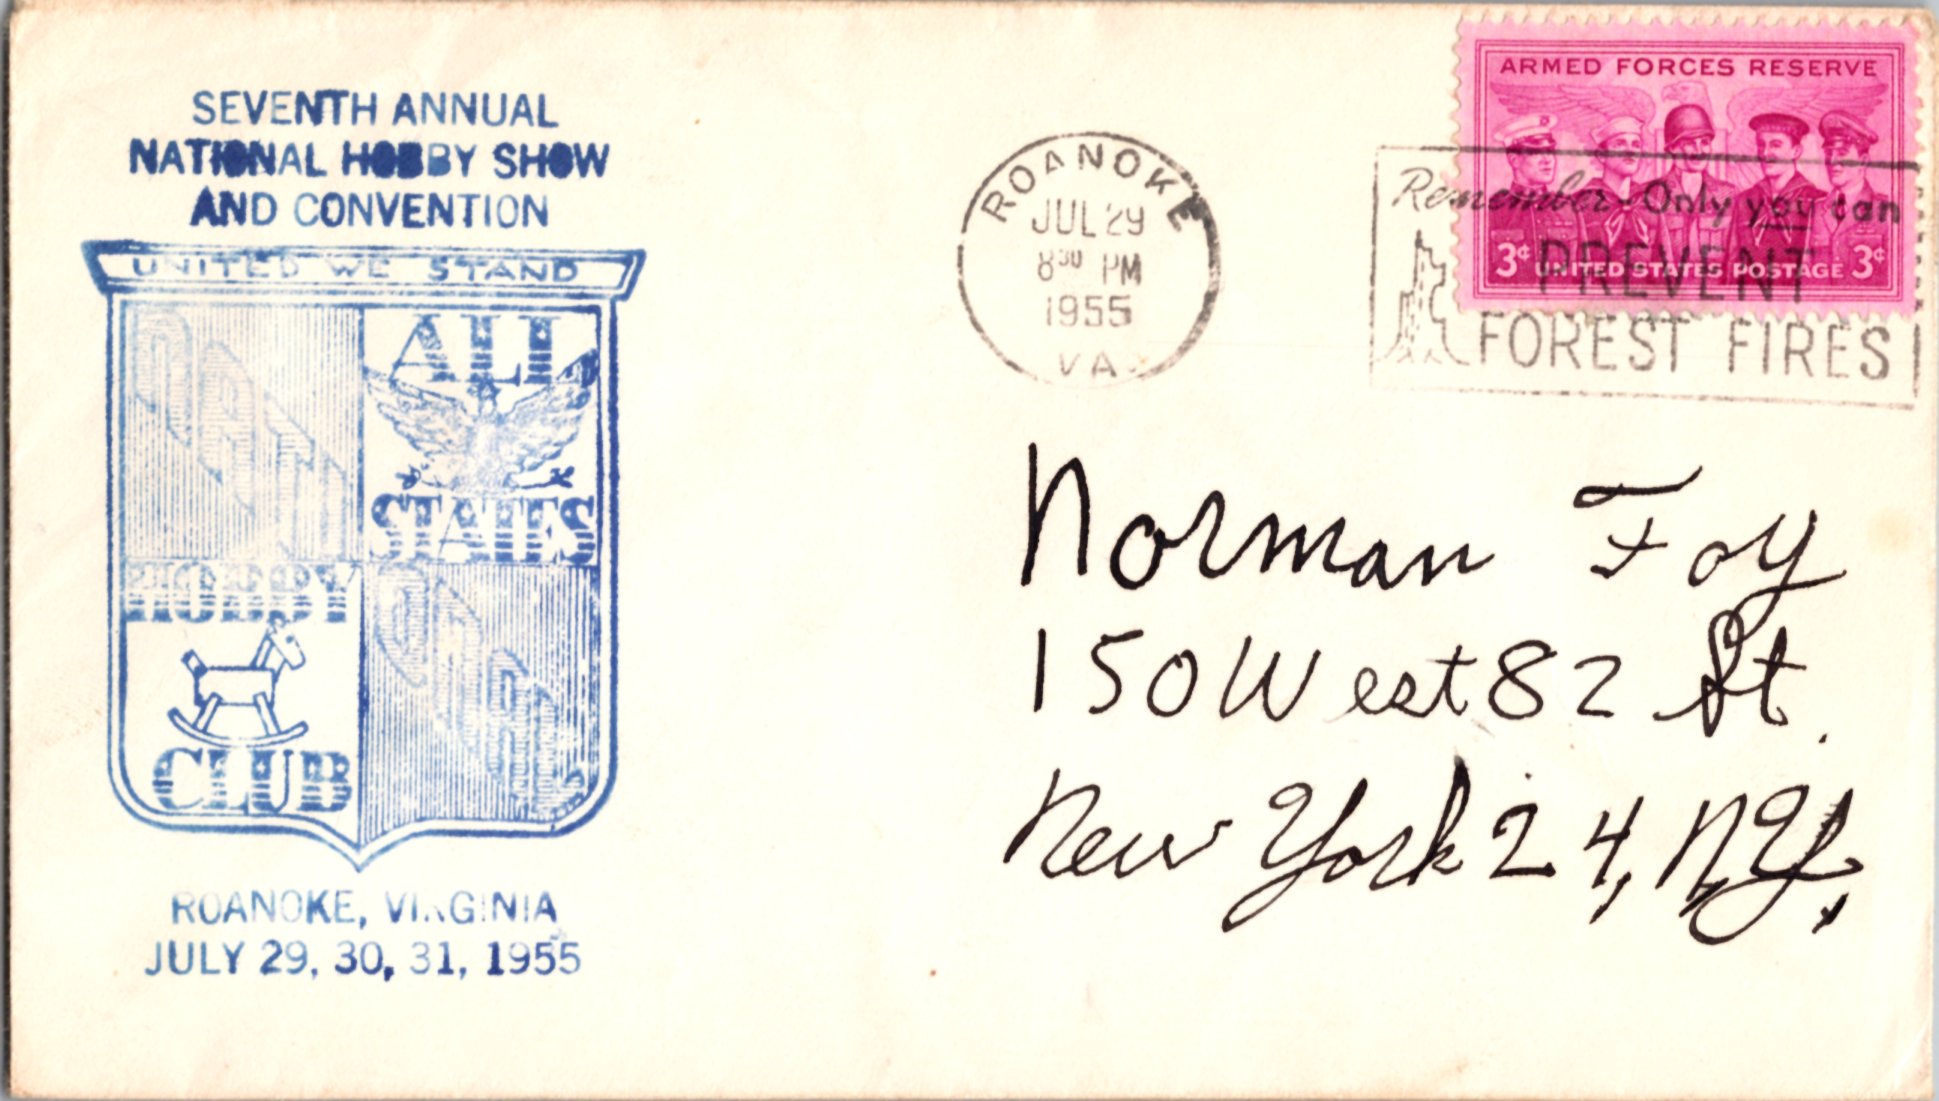 SEVENTH ANNUAL
NATIONAL HOBBY SHOW
AND CONVENTION
UNITED WE STAND
NATIONAL
ALL
STATES
HOBBY
CLUB
ROANOKE, VIRGINIA
JULY 29, 30, 31, 1955
ROANOKE
JUL 29
8 30 PM
1955
VA
ARMED FORCES RESERVE
3¢ UNITED STATES POSTAGE 3¢
Remember-Only you can
PREVENT
FOREST FIRES
Norman Foy
150 West 82 St.
New York 24, N.Y.